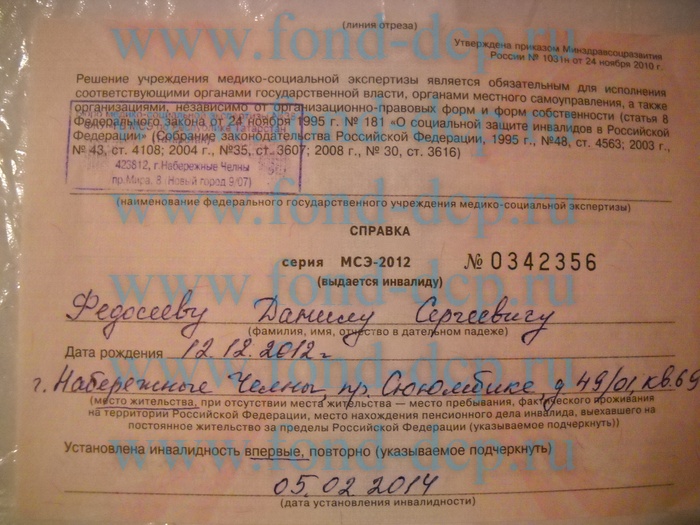 (линия отреза)
Утверждена приказом Минздравсоцразвития
России № 1031н от 24 ноября 2010 г.
Решение учреждения медико-социальной экспертизы является обязательным для исполнения
соответствующими органами государственной власти, органами местного самоуправления, а также
организациями, независимо от организационно-правовых форм и форм собственности (статья 8
Федерального закона от 24 ноября 1995 г. № 181 «О социальной защите инвалидов в Российской
Федерации» (Собрание законодательства Российской Федерации, 1995 г., №48, ст. 4563; 2003 г.,
№ 43, ст. 4108; 2004 г., №35, ст. 3607; 2008 г., № 30, ст. 3616)
423812, г.Набережные Челны
пр.Мира, 8 (Новый город 9/07)
(наименование федерального государственного учреждения медико-социальной экспертизы)
СПРАВКА
серия МСЭ-2012 № 0342356
(выдается инвалиду)
Федосееву Данилу Сергеевичу
(фамилия, имя, отчество в дательном падеже)
Дата рождения 12.12.2012 г
г. Набережные Челны, пр. Сююмбике, д 49/01 кв.69
(место жительства, при отсутствии места жительства — место пребывания, фактического проживания
на территории Российской Федерации, место нахождения пенсионного дела инвалида, выехавшего на
постоянное жительство за пределы Российской Федерации (указываемое подчеркнуть))
Установлена инвалидность впервые, повторно (указываемое подчеркнуть)
05.02.2014
(дата установления инвалидности)
www.fond-dcp.ru
www.fond-dcp.ru
www.fond-dcp.ru
www.fond-dcp.ru
www.fond-dcp.ru
www.fond-dcp.ru